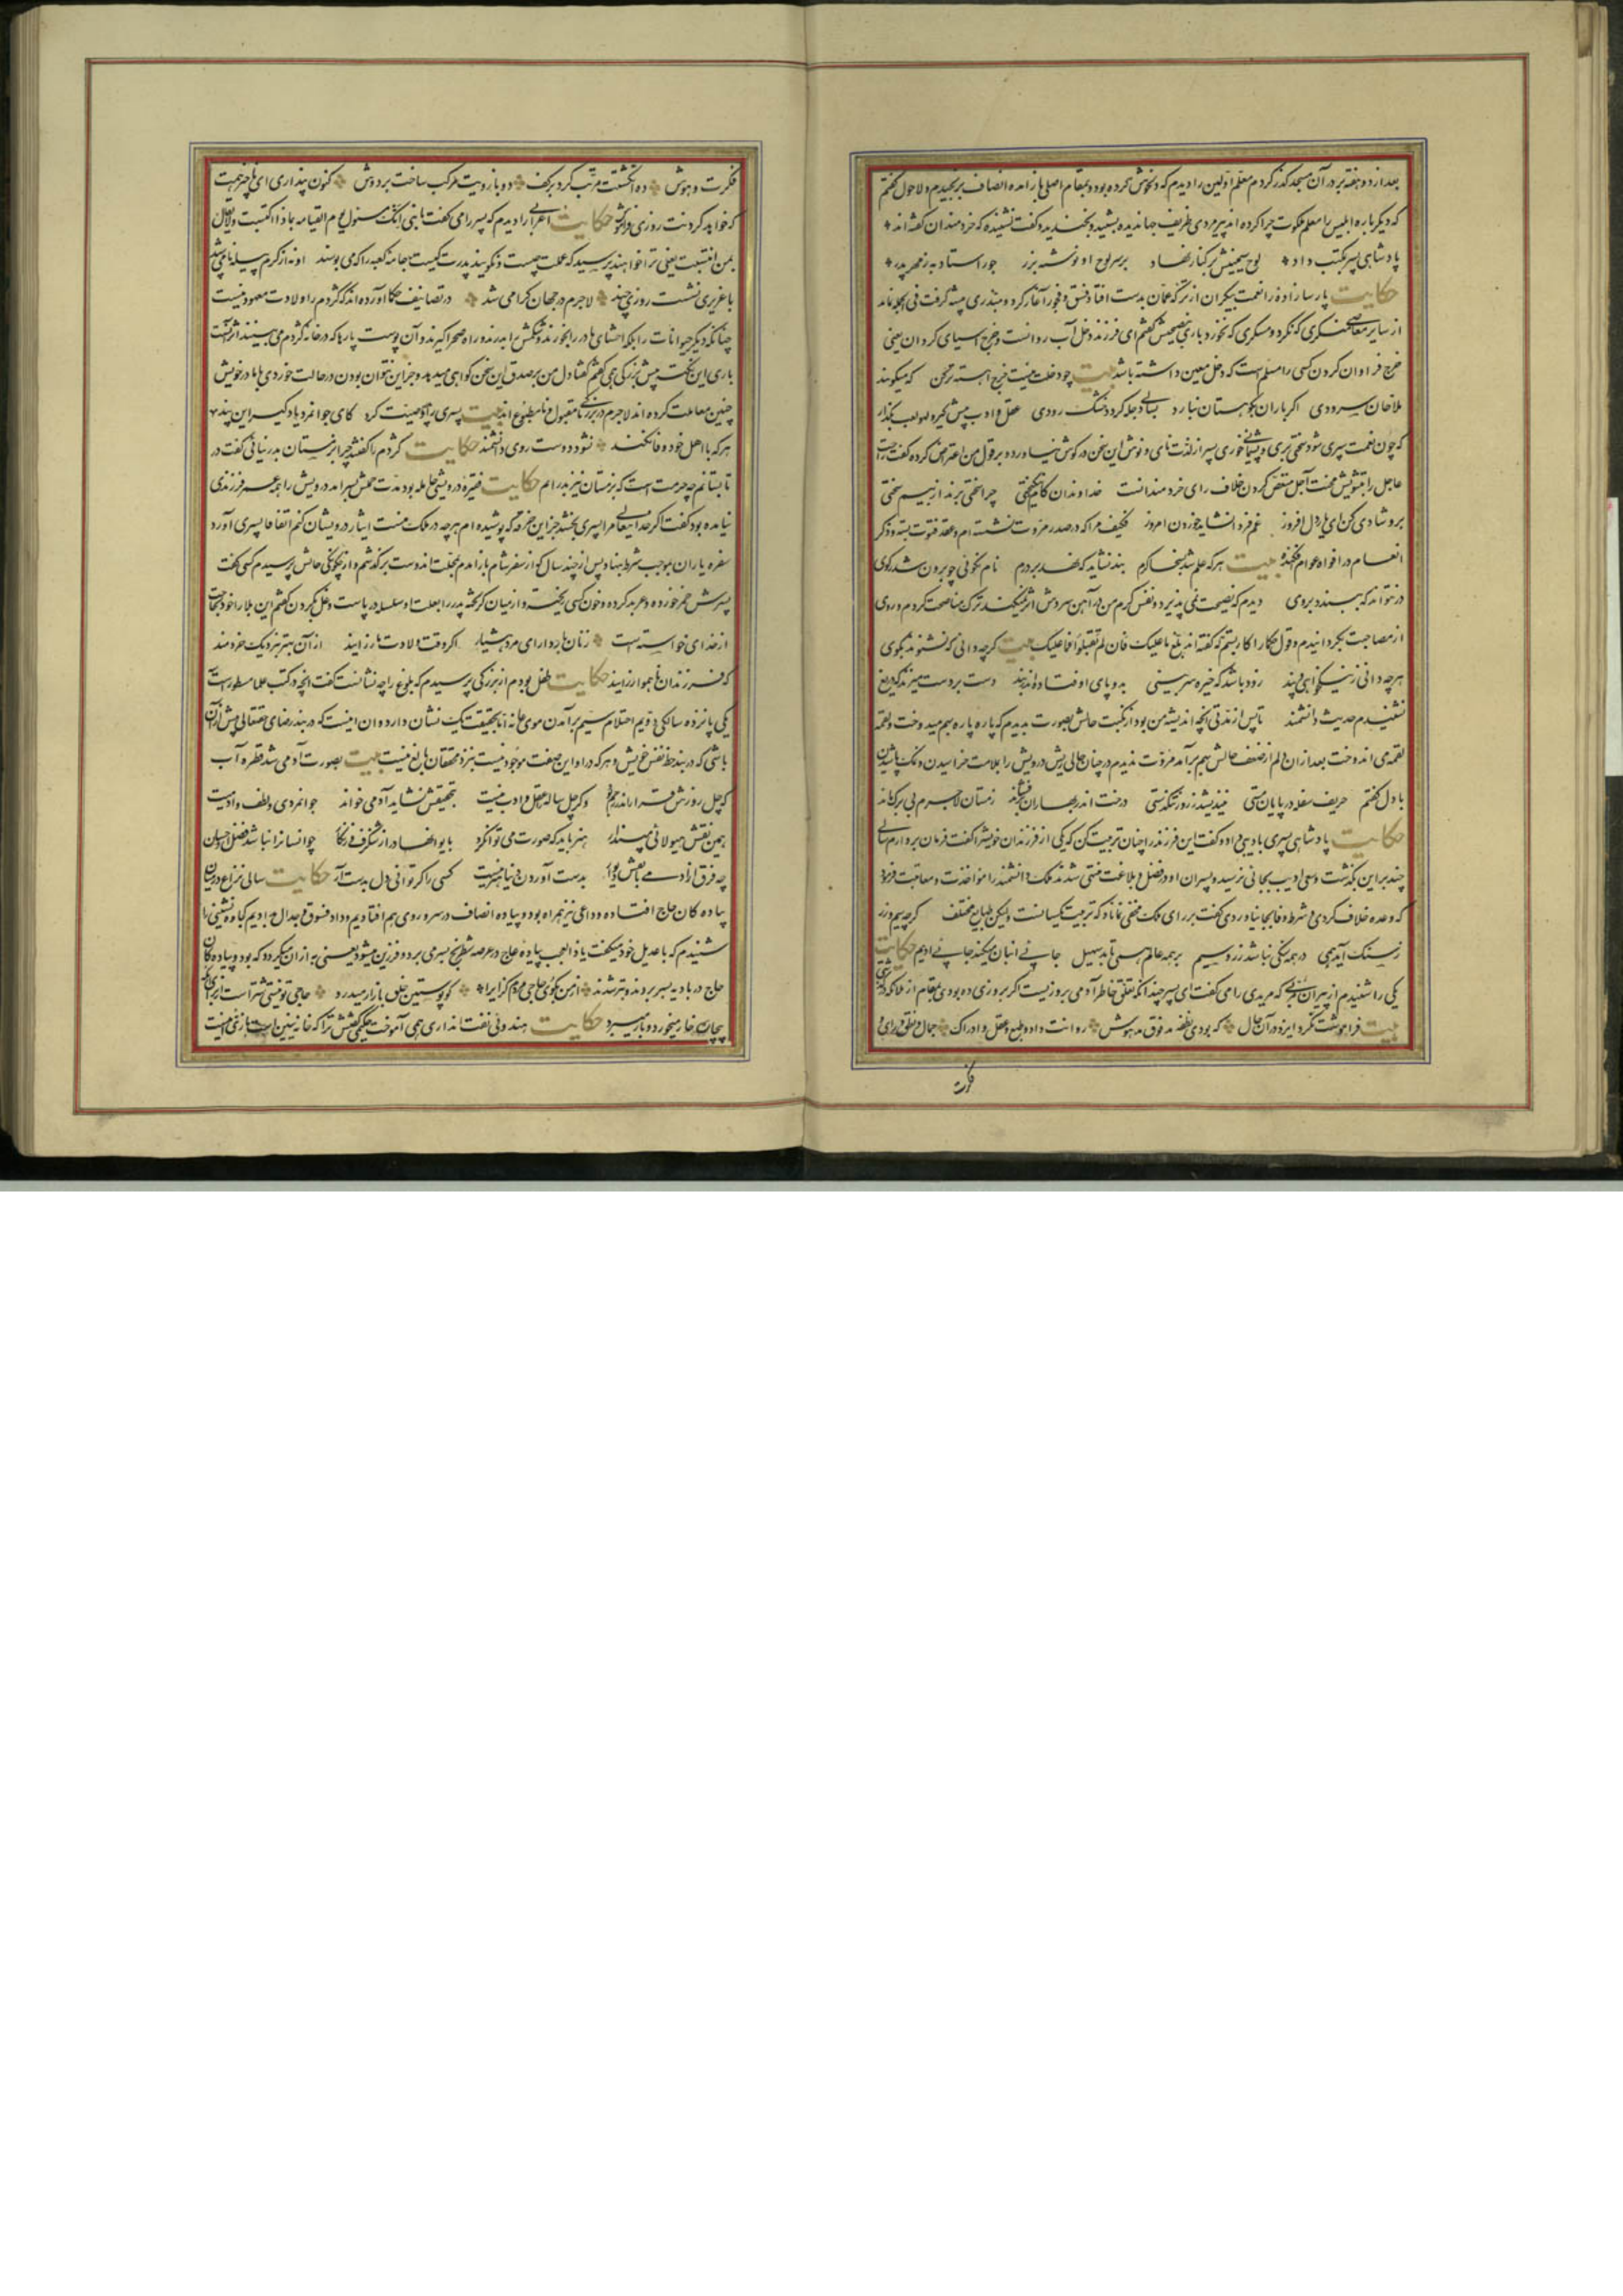 بعد از دو هفته بر در آن مسجد گذر کردم معلم اولین را دیدم که دلخوش کرده بودند و بمقام اصلی باز آمده انصاف برنجیدم و لاحول گفتم
که دیگر باره ابلیس را معلم ملکوت چرا کرده اند پیرمردی ظریف جهاندیده بشنید و بخندید و گفت نشنیده که خردمندان گفته اند
پادشاهی پسر بمکتب داد لوح سیمینش بر کنار نهاد بر سر لوح او نوشته بزر جور استاد به ز مهر پدر
حکایت پارسازاده را نعمت بیکران از ترکه عمان بدست افتاد فسق و فجور آغاز کرد و مبذری پیشه گرفت فی الجمله نماند
از سایر معاصی منکری که نکرد و مسکری که نخورد باری بنصیحتش گفتم ای فرزند دخل آب روانست و خرج آسیای گردان یعنی
خرج فراوان کردن کسی را مسلم است که دخل معین داشته باشد بیت چو دخلت نیست خرج آهسته تر کن که میگویند
ملاحان سرودی اگر باران بکوهستان نبارد بسالی دجله گردد خشک رودی عقل و ادب پیش گیر و لهو و لعب بگذار
که چون نعمت سپری شود سختی بری و پشیمانی خوری پسر از لذت نای و نوش این سخن در گوش نیاورد و بر قول من اعتراض کرد که گفت راحت
عاجل را بتشویش محنت آجل منغص کردن خلاف رای خردمندانست خداوندان کام و نیکبختی چرا سختی برند از بیم سختی
برو شادی کن ای یار دل افروز غم فردا نشاید خوردن امروز فکیف مرا که در صدر مروت نشسته ام و عقد فتوت بسته و ذکر
انعام در افواه عوام فکنده بیت هر که علم شد بسخا و کرم بند نشاید که نهد بر درم نام نکوئی چو برون شد بکوی
در نتوانی که ببندد بروی دیدم که نصیحت نمی پذیرد و نفس گرم من در آهن سردش اثر نمیکند ترک مناصحت کردم و روی
از مصاحبت بگردانیدم و قول حکما را کار بستم که گفته اند بلغ ما علیک فان لم یقبلوا فما علیک بیت گرچه دانی که نشنوند بگوی
هر چه دانی ز نیکخواهی و پند زود باشد که خیره سر بینی بدو پای اوفتاده اندر بند دست بر دست میزند که دریغ
نشنیدم حدیث دانشمند تا پس از مدتی آنچه اندیشه من بود از نکبت حالش بصورت بدیدم که پاره پاره بهم میدوخت و لقمه
لقمه می اندوخت بعد از آن دلم از ضعف حالش بهم برآمد مروت ندیدم در چنان حالی ریش درویش را بملامت خراشیدن و نمک پاشیدن
با دل گفتم حریف سفله در پایان مستی نیندیشد ز روز تنگدستی درخت اندر بهاران برفشاند زمستان لاجرم بی برگ ماند
حکایت پادشاهی پسری بادیبی داد و گفت این فرزند را چنان تربیت کن که یکی از فرزندان خویش را گفت فرمان بردارم سالی
چند بر این بگذشت و سعی ادیب بجائی نرسید و پسران او در فضل و بلاغت منتهی شدند ملک دانشمند را مواخذت و معاقبت فرمود
که وعده خلاف کردی و شرط وفا بجا نیاوردی گفت بر رای ملک مخفی نماناد که تربیت یکسانست ولیکن طبایع مختلف گرچه سیم و زر
ز سنگ آید همی در همه سنگی نباشد زر و سیم بر همه عالم همی تابد سهیل جائی انبان میکند جائی ادیم حکایت
یکی را شنیدم از پیران مربی که مریدی را همی گفت ای پسر چندانکه تعلق خاطر آدمی بروزیست اگر بروزی ده بودی بمقام از ملائکه درگذشتی
بیت فراموشت نکرد ایزد در آن حال که بودی نطفه مدفوق مدهوش روانت داد و طبع و عقل و ادراک جمال و نطق و رای و
فکرت
فکرت و هوش ده انگشتت مرتب کرد بر کف دو بازویت مرکب ساخت بر دوش کنون پنداری ای ناچیز همت
که خواهد کردنت روزی فراموش حکایت اعرابی را دیدم که پسر را همی گفت یا بنی انک مسئول یوم القیامه بماذا اکتسبت و لا یقال
بمن انتسبت یعنی ترا خواهند پرسید که عملت چیست و نگویند پدرت کیست جامه کعبه را که می بوسند او نه از کرم پیله نامی شد
با عزیزی نشست روزی چند لاجرم در جهان گرامی شد در تصانیف حکما آورده اند که کژدم را ولادت معهود نیست
چنانکه دیگر حیوانات را بلکه احشای مادر را بخورند و شکمش بدرند و راه صحرا گیرند و آن پوست پارها که در خانه کژدم می بینند اثر آنست
باری این نکته پیش بزرگی همی گفتم گفتا دل من بر صدق این سخن گواهی میدهد و جز این نتوان بودن در حالت خوردی با مادر خویش
چنین معاملت کرده اند لاجرم در بزرگی نامقبول و نامطبوع اند بیت پسری را پدر وصیت کرد کای جوانمرد یاد گیر این پند
هر که با اهل خود وفا نکند نشود دوست روی دانشمند حکایت کژدم را گفتند چرا بزمستان بدر نیائی گفت در
تابستانم چه حرمت است که بزمستان نیز بدر آیم حکایت فقیره درویشی حامله بود مدت حملش بسر آمد درویش را همه عمر فرزندی
نیامده بود گفت اگر خدایتعالی مرا پسری بخشد جز این خرقه که پوشیده ام هر چه در ملک منست ایثار درویشان کنم اتفاقا پسری آورد
سفره یاران بموجب شرط بنهاد پس از چند سال که از سفر شام باز آمدم بمحلت آن دوست برگذشتم و از چگونگی حالش پرسیدم کسی گفت
پسرش خمر خورده و عربده کرده و خون کسی ریخته و از میان گریخته پدر را بعلت او سلسله در پاست و غل بر گردن گفتم این بلا را خود بحاجت
از خدای خواسته است زنان باردار ای مرد هشیار اگر وقت ولادت مار زایند از آن بهتر بنزدیک خردمند
که فرزندان ناهموار زایند حکایت طفل بودم از بزرگی پرسیدم که بلوغ را چه نشانست گفت آنچه در کتب علما مسطور است
یکی پانزده سالگی دویم احتلام سیم برآمدن موی عانه اما بحقیقت یک نشان دارد و آن اینست که در بند رضای حقتعالی بیش از آن
باشی که در بند حظ نفس خویش و هر که در او این صفت موجود نیست بنزد محققان بالغ نیست بیت بصورت آدمی شد قطره آب
که چل روزش قرار اندر رحم ماند وگر چل ساله عقل و ادب نیست بتحقیقش نشاید آدمی خواند جوانمردی و لطف و ادمیت
همین نقش هیولائی مپندار هنر باید که صورت می توان کرد بایوانها در از شنگرف و زنگار چو انسان را نباشد فضل و احسان
چه فرق از آدمی با نقش دیوار بدست آوردن دنیا هنر نیست کسی را گر توانی دل بدست آر حکایت سالی نزاع در میان
پیاده گان حاج افتاده و داعی نیز همراه بود و پیاده انصاف در سر و روی هم افتادیم و داد فسوق و جدال دادیم کجاوه نشینی را
شنیدم که با عدیل خود میگفت یا ذا العجب پیاده عاج در عرصه شطرنج بسر می برد و فرزین میشود یعنی به از آن میگردد که بود و پیاده گان
حاج در بادیه بسر بردند و بتر شدند از من بگوی حاجی مردم گزایرا کو پوستین خلق بازار میدرد حاجی تو نیستی شتر است از برای آنک
بیچاره خار میخورد و بار میبرد حکایت هندوئی نفت اندازی همی آموخت حکیمی گفتش ترا که خانه نئین است بازی نه اینست